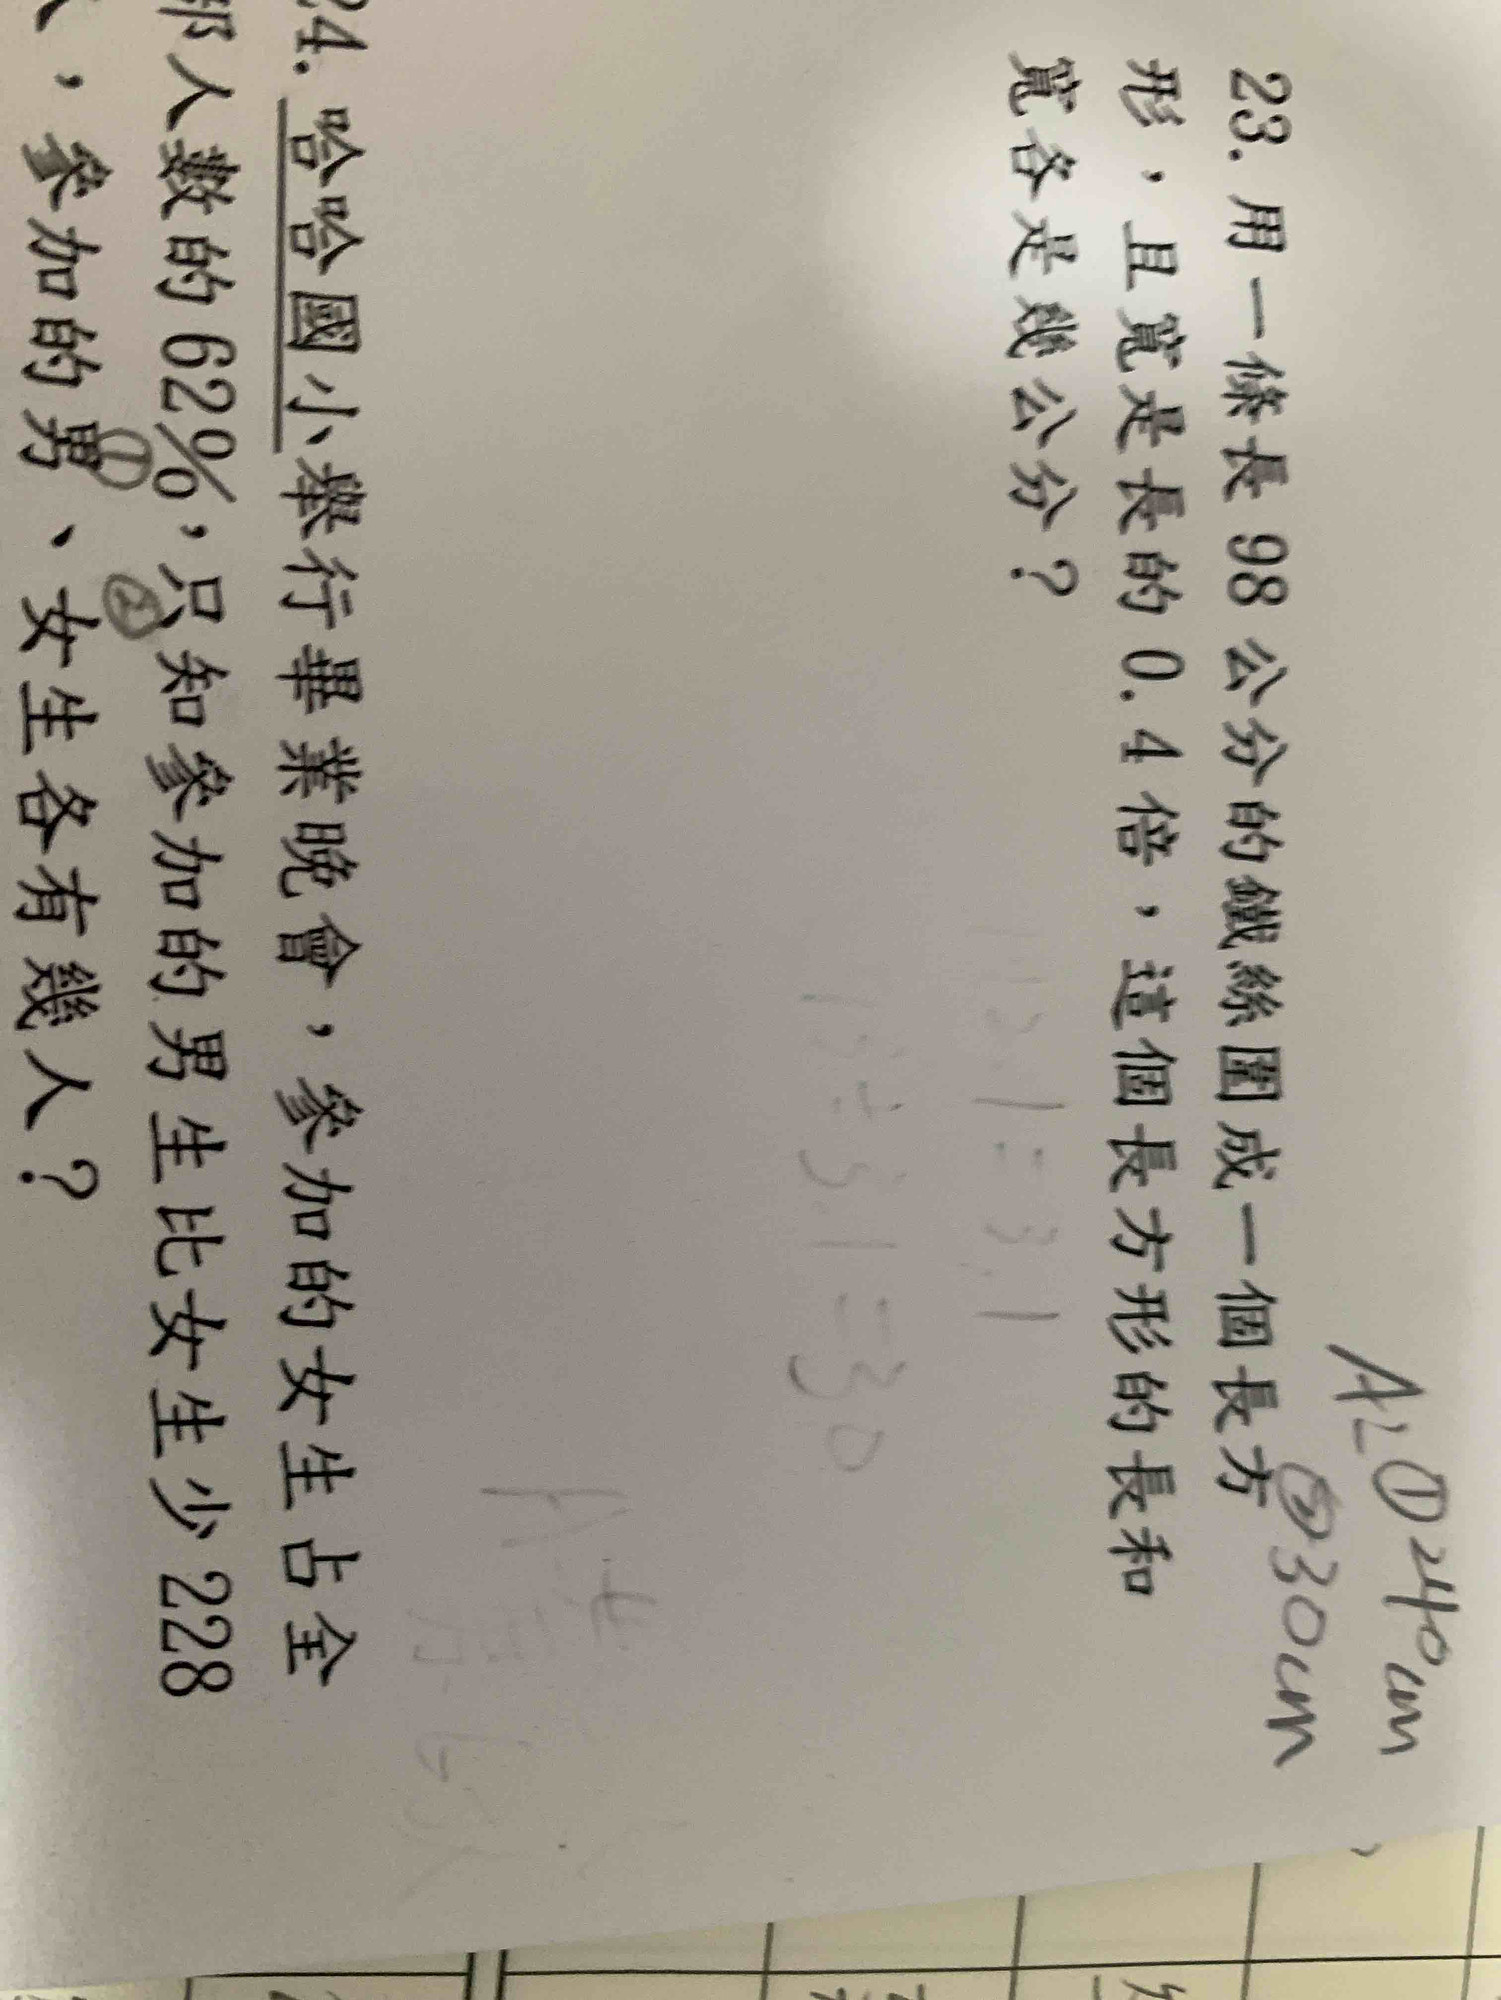 A: ① 240cm
② 30cm
23. 用一條長 98 公分的鐵絲圍成一個長方
形，且寬是長的 0.4 倍，這個長方形的長和
寬各是幾公分？
÷3.1=30
24. 哈哈國小舉行畢業晚會，參加的女生占全
部人數的 62%，只知參加的男生比女生少 228
人，參加的男、女生各有幾人？
① ②